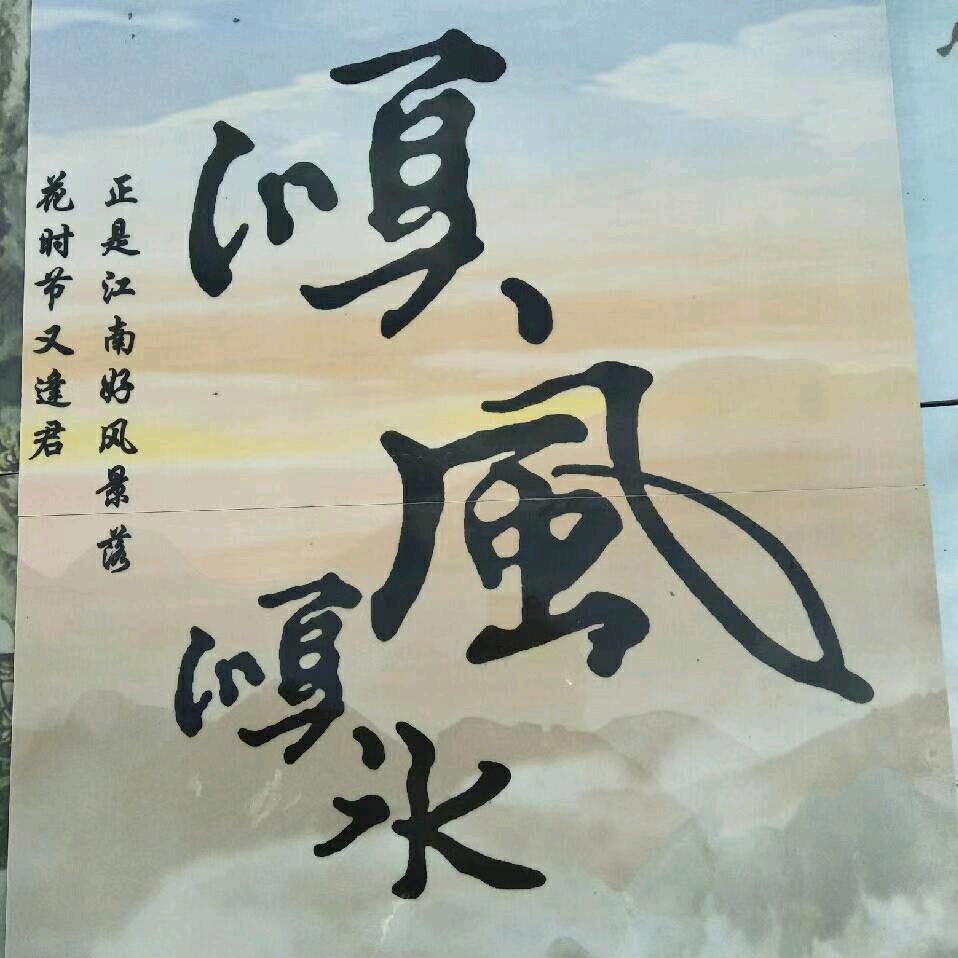 順風
順水
正是江南好风景落
花时节又逢君